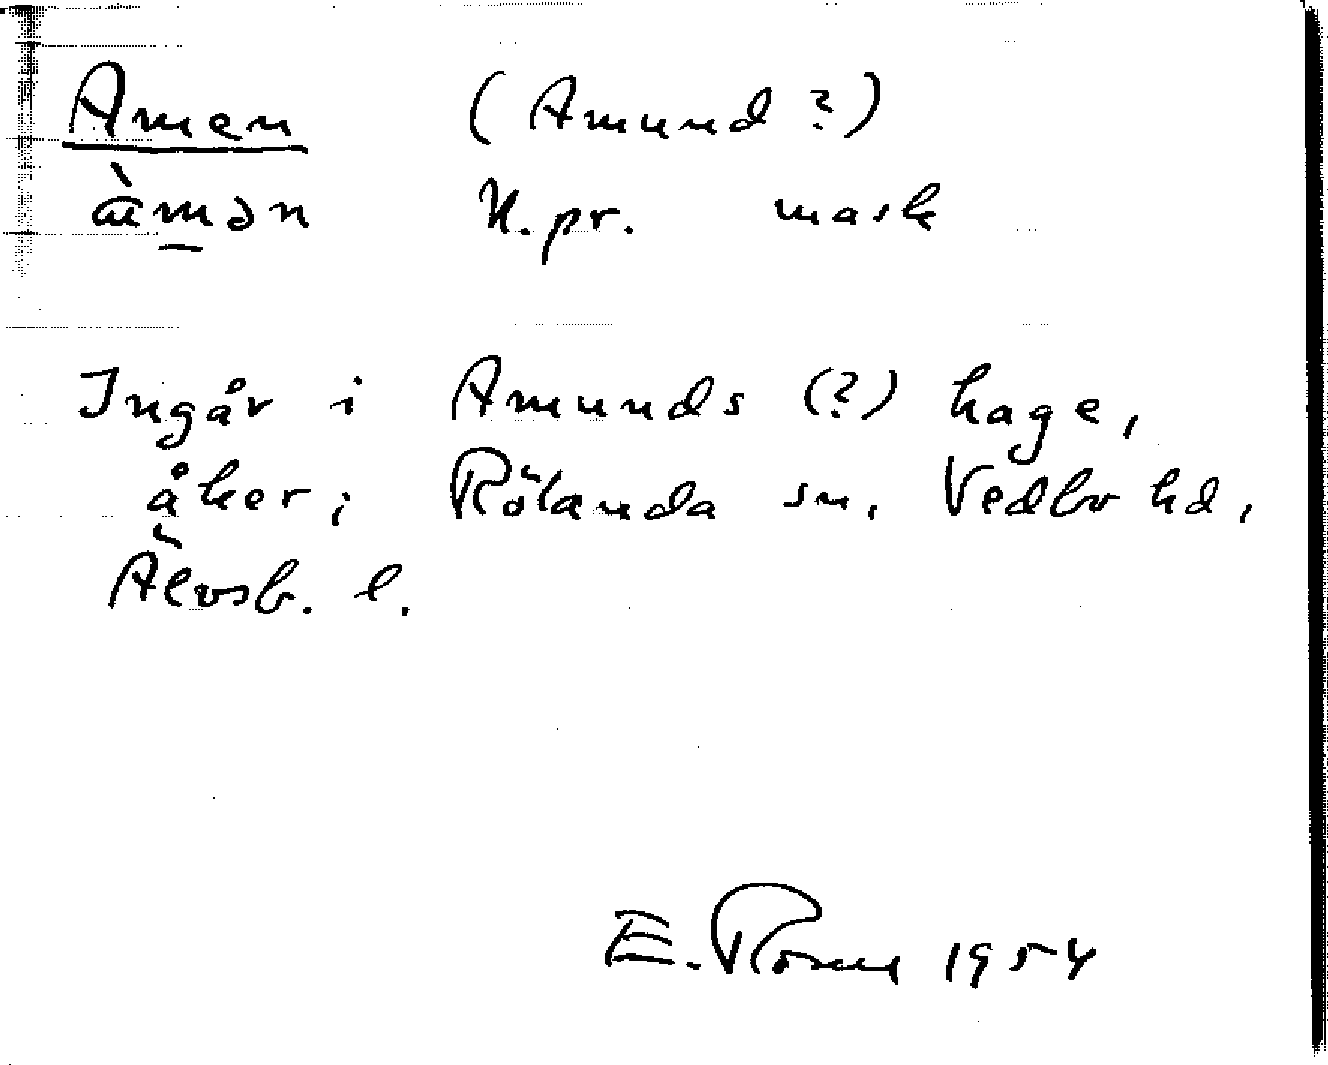 Amen (Amund?)
àmən N.pr. mask
Ingår i Amunds (?) hage,
åker, Rölanda sn, Vedbo hd,
Älvsb. l.
E. 1954